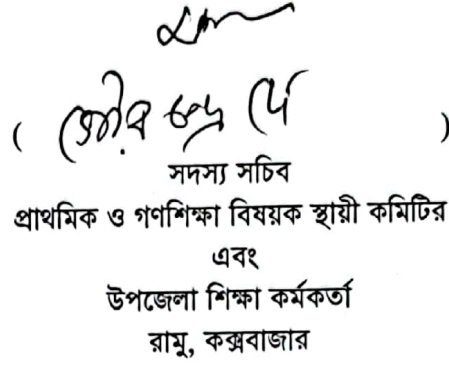 ( গৌর চন্দ্র দে )
সদস্য সচিব
প্রাথমিক ও গণশিক্ষা বিষয়ক স্থায়ী কমিটির
এবং
উপজেলা শিক্ষা কর্মকর্তা
রামু, কক্সবাজার